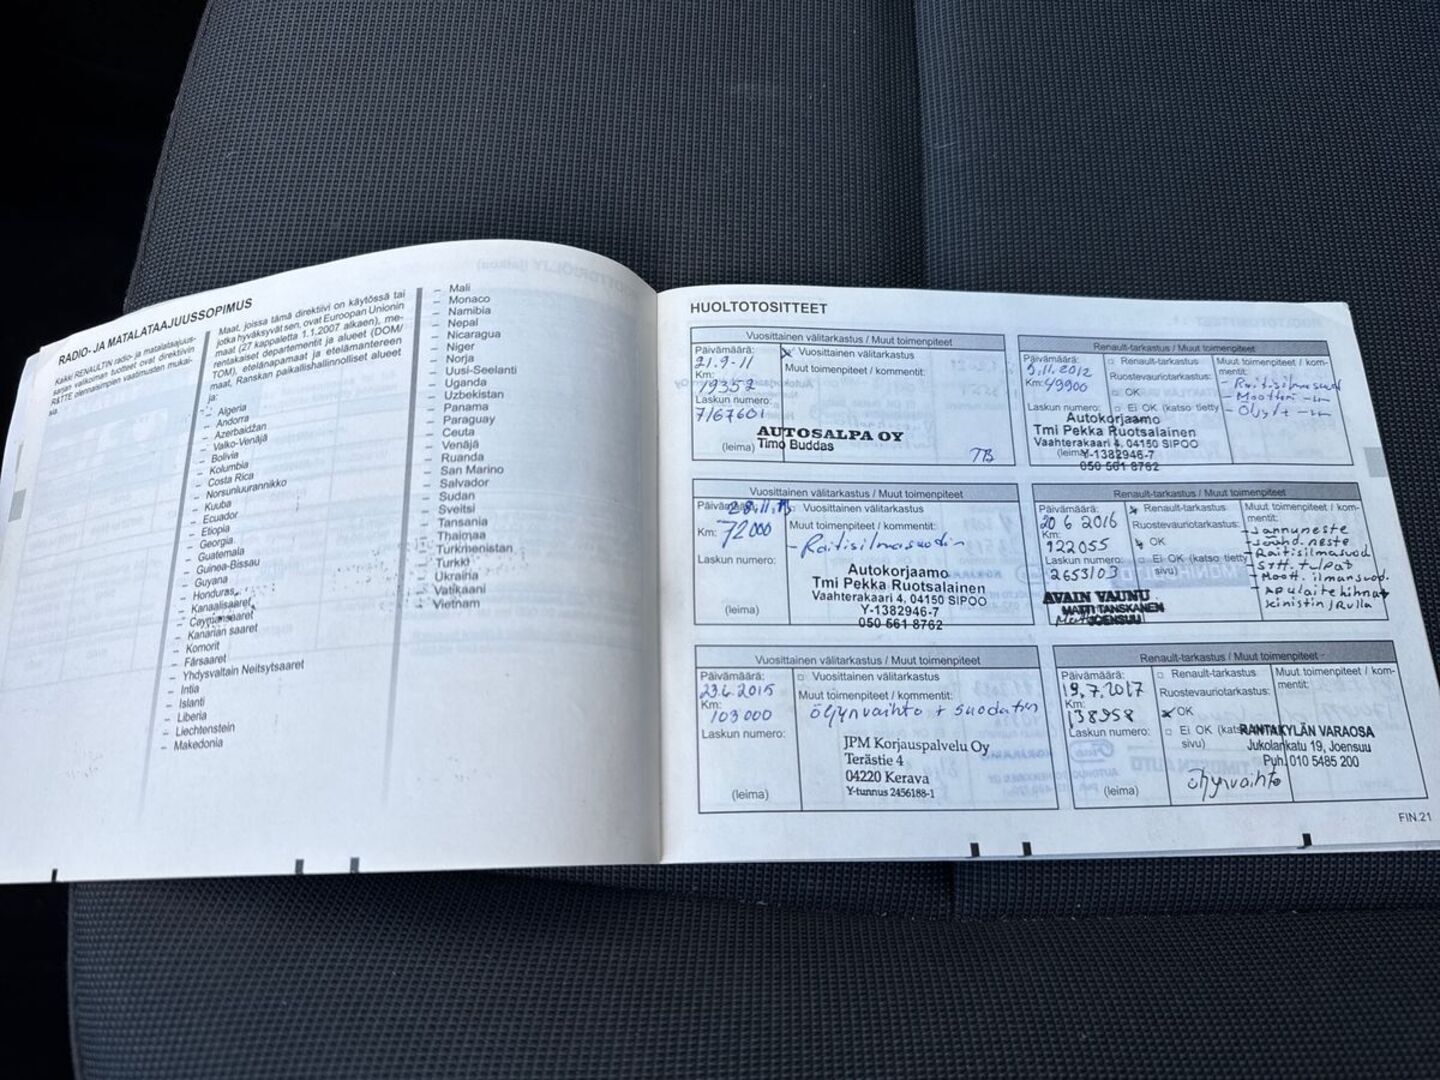 RADIO- JA MATALATAAJUUSSOPIMUS
Kaikki RENAULTIN radio- ja matalataajuus-
sarjan valikoiman tuotteet ovat direktiivin
R&TTE olennaisimpien vaatimusten mukai-
sia.
Maat, joissa tämä direktiivi on käytössä tai
jotka hyväksyvät sen, ovat Euroopan Unionin
maat (27 kappaletta 1.1.2007 alkaen), me-
rentakaiset departementit ja alueet (DOM/
TOM), etelänapamaat ja etelämantereen
maat, Ranskan paikallishallinnolliset alueet
ja:
– Algeria
– Andorra
– Azerbaidžan
– Valko-Venäjä
– Bolivia
– Kolumbia
– Costa Rica
– Norsunluurannikko
– Kuuba
– Ecuador
– Etiopia
– Georgia
– Guatemala
– Guinea-Bissau
– Guyana
– Honduras
– Kanaalisaaret
– Caymansaaret
– Kanarian saaret
– Komorit
– Färsaaret
– Yhdysvaltain Neitsytsaaret
– Intia
– Islanti
– Liberia
– Liechtenstein
– Makedonia
– Mali
– Monaco
– Namibia
– Nepal
– Nicaragua
– Niger
– Norja
– Uusi-Seelanti
– Uganda
– Uzbekistan
– Panama
– Paraguay
– Ceuta
– Venäjä
– Ruanda
– San Marino
– Salvador
– Sudan
– Sveitsi
– Tansania
– Thaimaa
– Turkmenistan
– Turkki
– Ukraina
– Vatikaani
– Vietnam
HUOLTOTOSITTEET
Vuosittainen välitarkastus / Muut toimenpiteet
Päivämäärä:
21.9-11
Km:
19352
Laskun numero:
7/67601
(leima)
Vuosittainen välitarkastus
Muut toimenpiteet / kommentit:
AUTOSALPA OY
Timo Buddas
TB
Renault-tarkastus / Muut toimenpiteet
Päivämäärä:
5.11.2012
Km:
49900
Laskun numero:
(leima)
Renault-tarkastus
Ruostevauriotarkastus:
OK
Ei OK (katso tietty
Muut toimenpiteet / kom-
mentit:
- Raitisilmasuod
- Moottori -"-
- Öljyt -"-
Autokorjaamo
Tmi Pekka Ruotsalainen
Vaahterakaari 4, 04150 SIPOO
Y-1382946-7
050 561 8762
Vuosittainen välitarkastus / Muut toimenpiteet
Päivämäärä:
28.11.13
Km:
72000
Laskun numero:
(leima)
Vuosittainen välitarkastus
Muut toimenpiteet / kommentit:
- Raitisilmasuodin
Autokorjaamo
Tmi Pekka Ruotsalainen
Vaahterakaari 4, 04150 SIPOO
Y-1382946-7
050 561 8762
Renault-tarkastus / Muut toimenpiteet
Päivämäärä:
20 6 2016
Km:
122055
Laskun numero:
2653103
Renault-tarkastus
Ruostevauriotarkastus:
OK
Ei OK (katso tietty
sivu)
Muut toimenpiteet / kom-
mentit:
- Jarruneste
- Jäähd. neste
- Raitisilmasuod
- Sytt. tulpat
- Moott. ilmansuod.
- Apulaitehihnat
Kiristin/Rulla
AVAIN VAUNU
MATTI TANSKANEN
JOENSUU
Vuosittainen välitarkastus / Muut toimenpiteet
Päivämäärä:
23.6.2015
Km:
103000
Laskun numero:
(leima)
Vuosittainen välitarkastus
Muut toimenpiteet / kommentit:
öljynvaihto + suodatin
JPM Korjauspalvelu Oy
Terästie 4
04220 Kerava
Y-tunnus 2456188-1
Renault-tarkastus / Muut toimenpiteet
Päivämäärä:
19.7.2017
Km:
138958
Laskun numero:
(leima)
Renault-tarkastus
Ruostevauriotarkastus:
OK
Ei OK
sivu)
Muut toimenpiteet / kom-
mentit:
RANTAKYLÄN VARAOSA
Jukolankatu 19, Joensuu
Puh. 010 5485 200
öljynvaihto
FIN.21